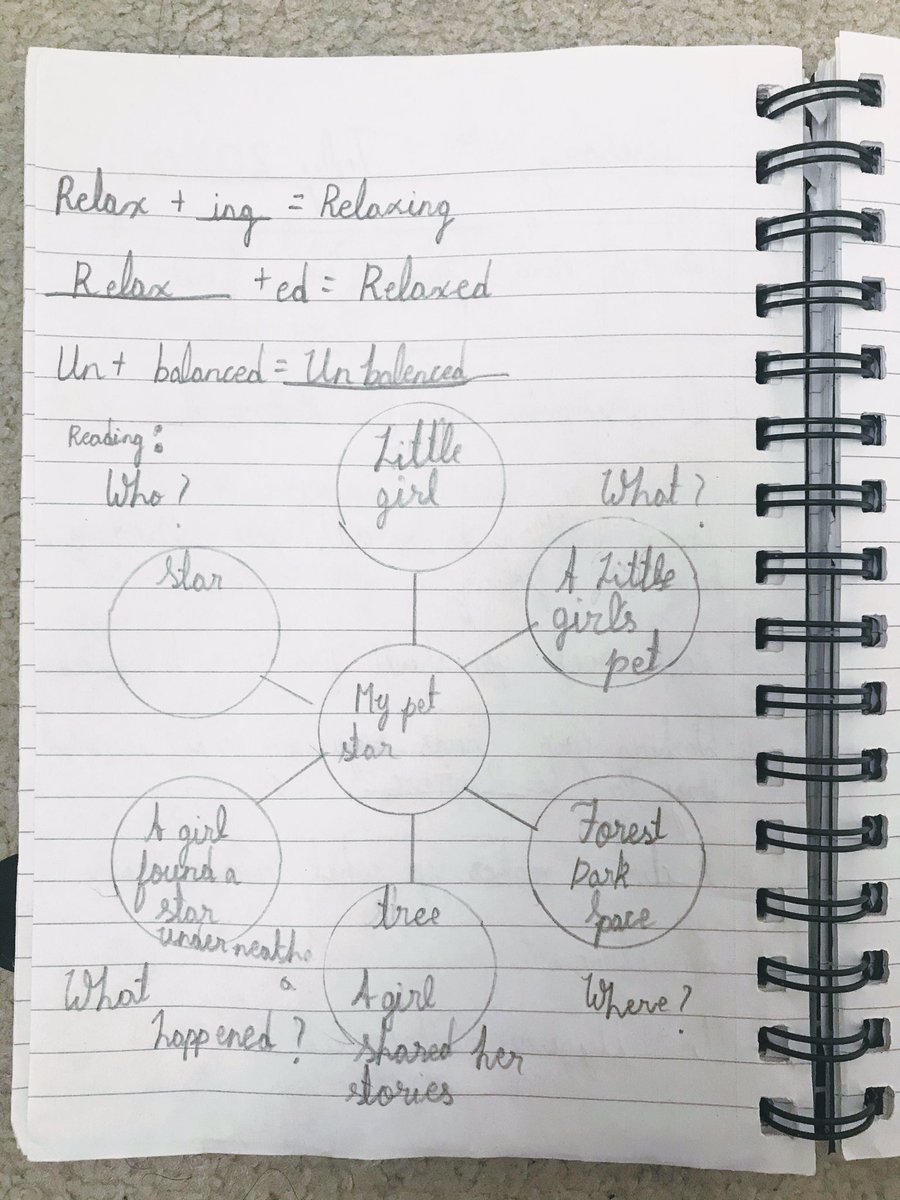 Relax + ing = Relaxing
Relax +ed = Relaxed
Un + balanced = Unbalenced
Reading:
Who?
Little
girl
What?
star
A Little
girl's
pet
My pet
star
A girl
found a
star
underneathe
a
tree
Forest
Park
Space
What
happened?
A girl
shared her
stories
Where?